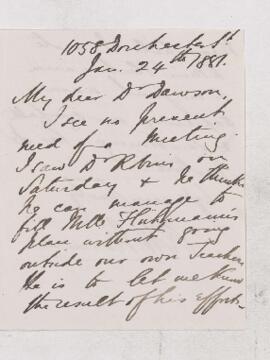 1058 Dorchester St
Jan. 24th 1881.
My dear Dr Dawson,
I see no present
need of a meeting.
I saw Dr Robins on
Saturday & he thinks
he can manage to
fill Mlle
place without going
outside our own Teachers
He is to let me know
the result of his efforts.